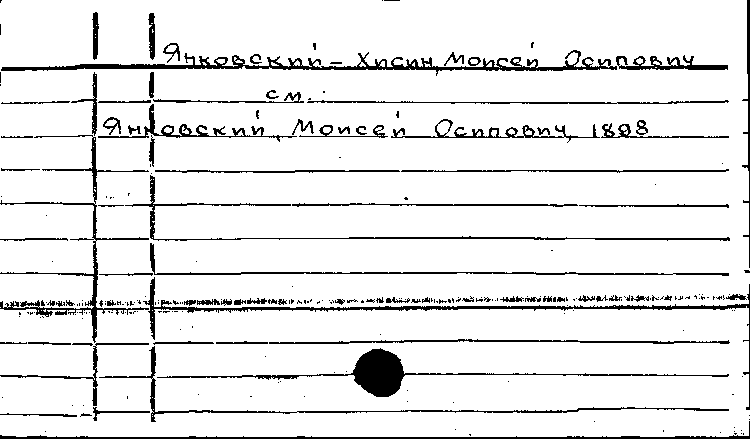 Янковский - Хисин, Моисей Осипович
см.:
Янковский, Моисей Осипович, 1898